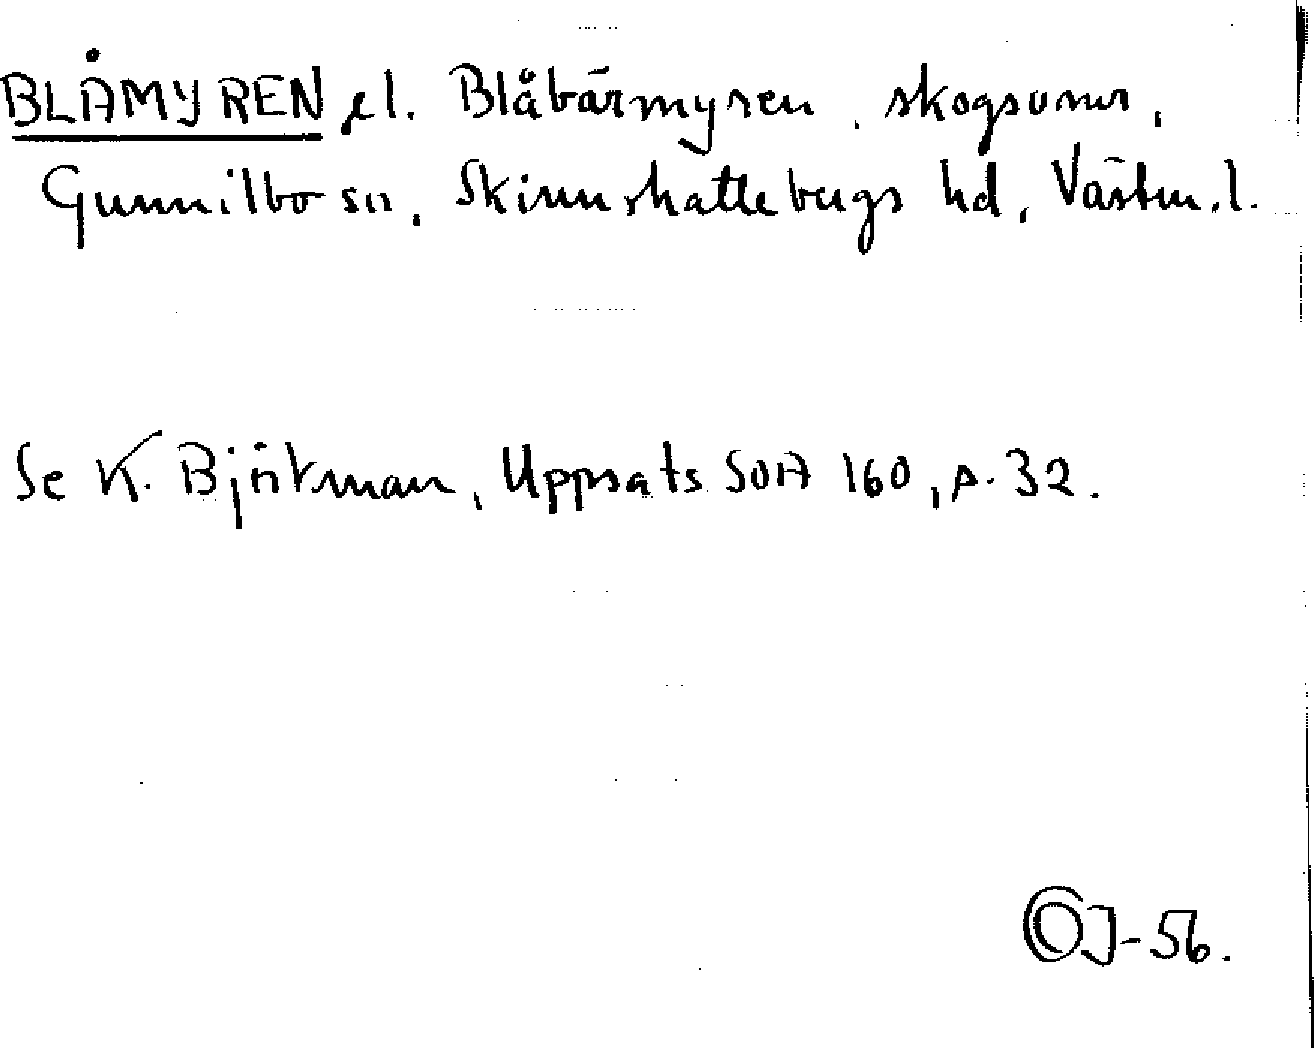 BLÅMYREN el. Blåbärmyren, skogsomr,
Gunnilbo sn, Skinnskattebergs hd, Västm.l.
Se K. Björkman, Uppsats SOA 160, s. 32.
-56.